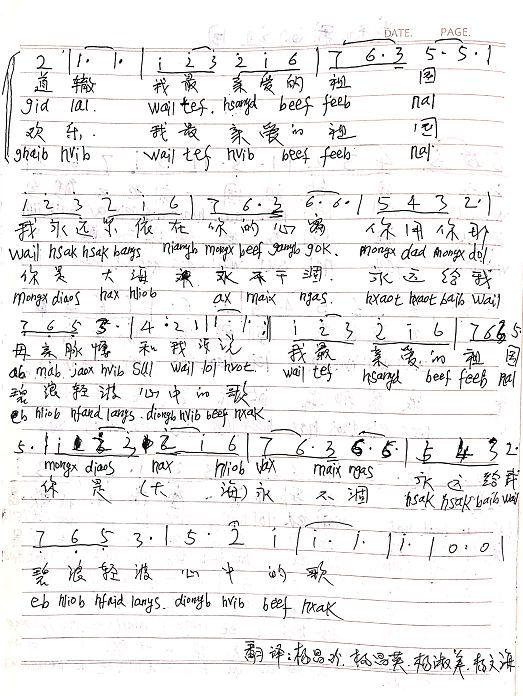 DATE. PAGE.
2 | i. i. | i 2 3 2 i 6 | 7 6·3 5·5·|
道 辙 我最 亲爱的 祖 国
gid lal. wail tef. hsangd beef feeb nal
欢乐. 我最 亲爱的 祖 国
ghaib hvib wail tef hvib beef feeb nal
i 2 3 2 i 6 | 7 6·3 6·6·| 5 4 3 2·|
我永远 依在你的心窝 你用你那
wail hsak hsak bangs niangb mongx beef gangb gok. mongx dad mongx dol.
你是大海 永不干涸. 永远给我
mongx diaos hax hliob. ax maix ngas. hxaot hxaot baib wail
7 6 5 3·| 4·2 i | i· i·:| i 2 3 2 i 6 | 7 6 3 5
母亲脉 和我 说 我最 亲爱的 祖国
ab mab jaox hvib sul wail lol hvot. wail tef hsangd beef feeb nal
碧浪轻波心中的歌
eb hliob hfaid langs. diongb hvib beef hxak
5·| i 2 3 2 i 6 | 7 6·3 6·6·| 5 4 3 2·
mongx diaos hax hliob vax maix ngas
你是(大海)永不涸 永远给我
hsak hsak baib wail
7 6 5 3·| 5· 2 i | i· i·| i·| 0·0 |
碧浪轻波心中的歌
eb hliob hfaid langs. diongb hvib beef hxak
翻译:杨昌 . 杨昌英. 杨淑英. 杨文海